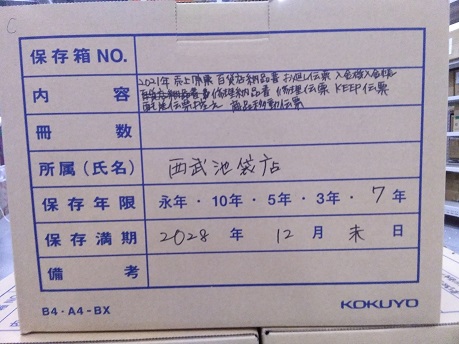 C
保存箱NO.
内容 2021年 売上原票 百貨店納品書 お直し伝票 入金袋入金帳
百貨店納品書 修理納品書 修理伝票 KEEP伝票
伝票控え 商品移動伝票
冊数
所属(氏名) 西武池袋店
保存年限 永年・10年・5年・3年・7年
保存満期 2028年 12月 末日
備考
B4・A4-BX KOKUYO